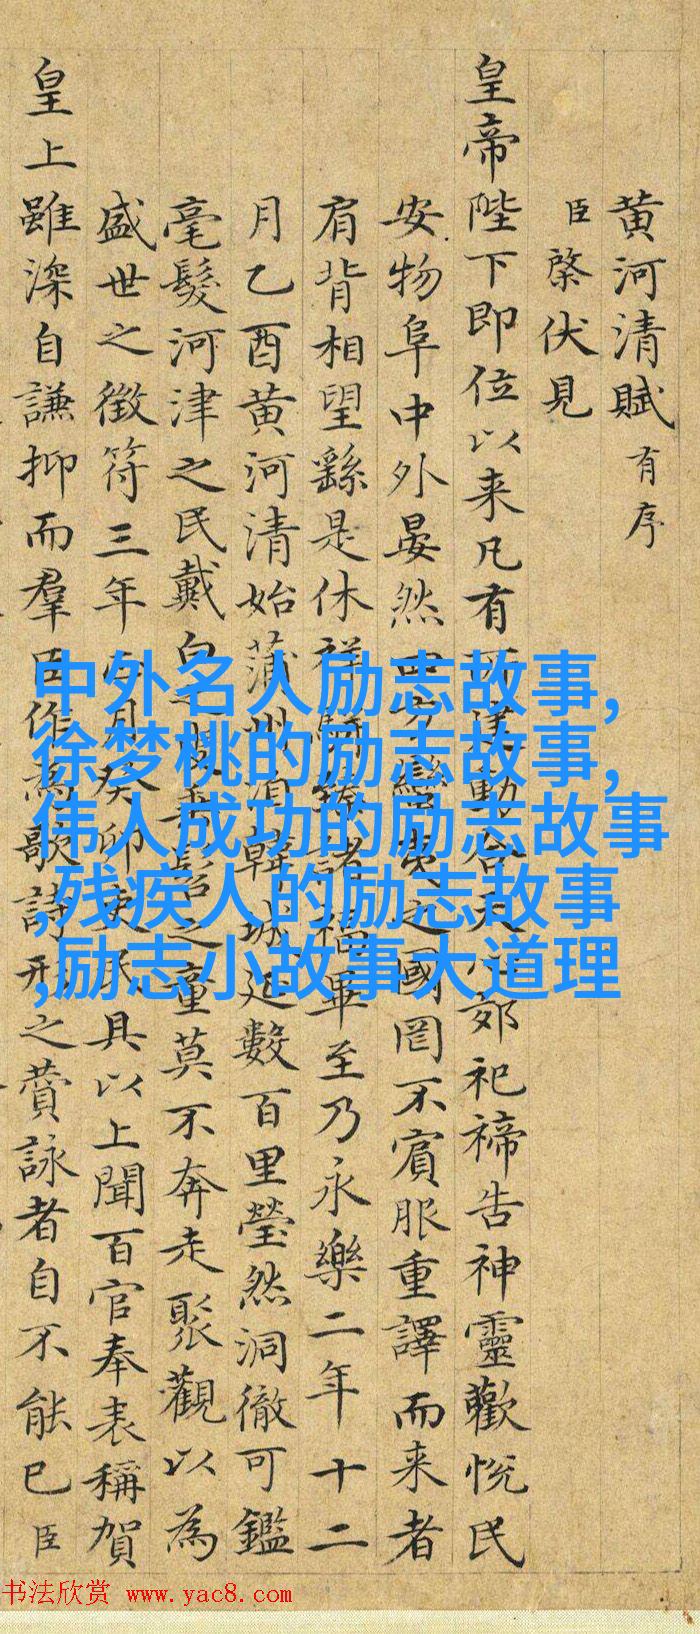 黄河清賦 有序
臣棨伏見
皇帝陛下即位以来凡有動合郊祀禘告神靈歡悅民
安物阜中外晏然四方蠻夷之國罔不賓服重譯而来者
肩背相望繇是休祥駢臻諸福畢至乃永樂二年十二
月乙酉黄河清始蒲州韓城延數百里瑩然洞徹可鑑
毫髮河津之民戴白之叟垂髫之童莫不奔走聚觀以為
盛世之徵符三年正月癸卯具以上聞百官奉表稱賀
皇上雖深自謙抑而羣臣作為歌詩形之賛詠者自不能已臣
中外名人励志故事,
徐梦桃的励志故事,
伟人成功的励志故事
,残疾人的励志故事
,励志小故事大道理
书法欣赏 www.yac8.com